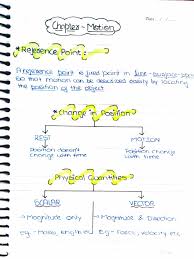 Chapter - Motion
* Reference Point :-
A reference point is fixed point in
so that motion can be described easily by locating
the position of the object
* Change in Position
REST MOTION
Position doesn't Position
change with time change with time
* Physical Quantities
SCALAR VECTOR
→ Magnitude only → Magnitude & Direction
eg - Mass, eg - Force, velocity etc.